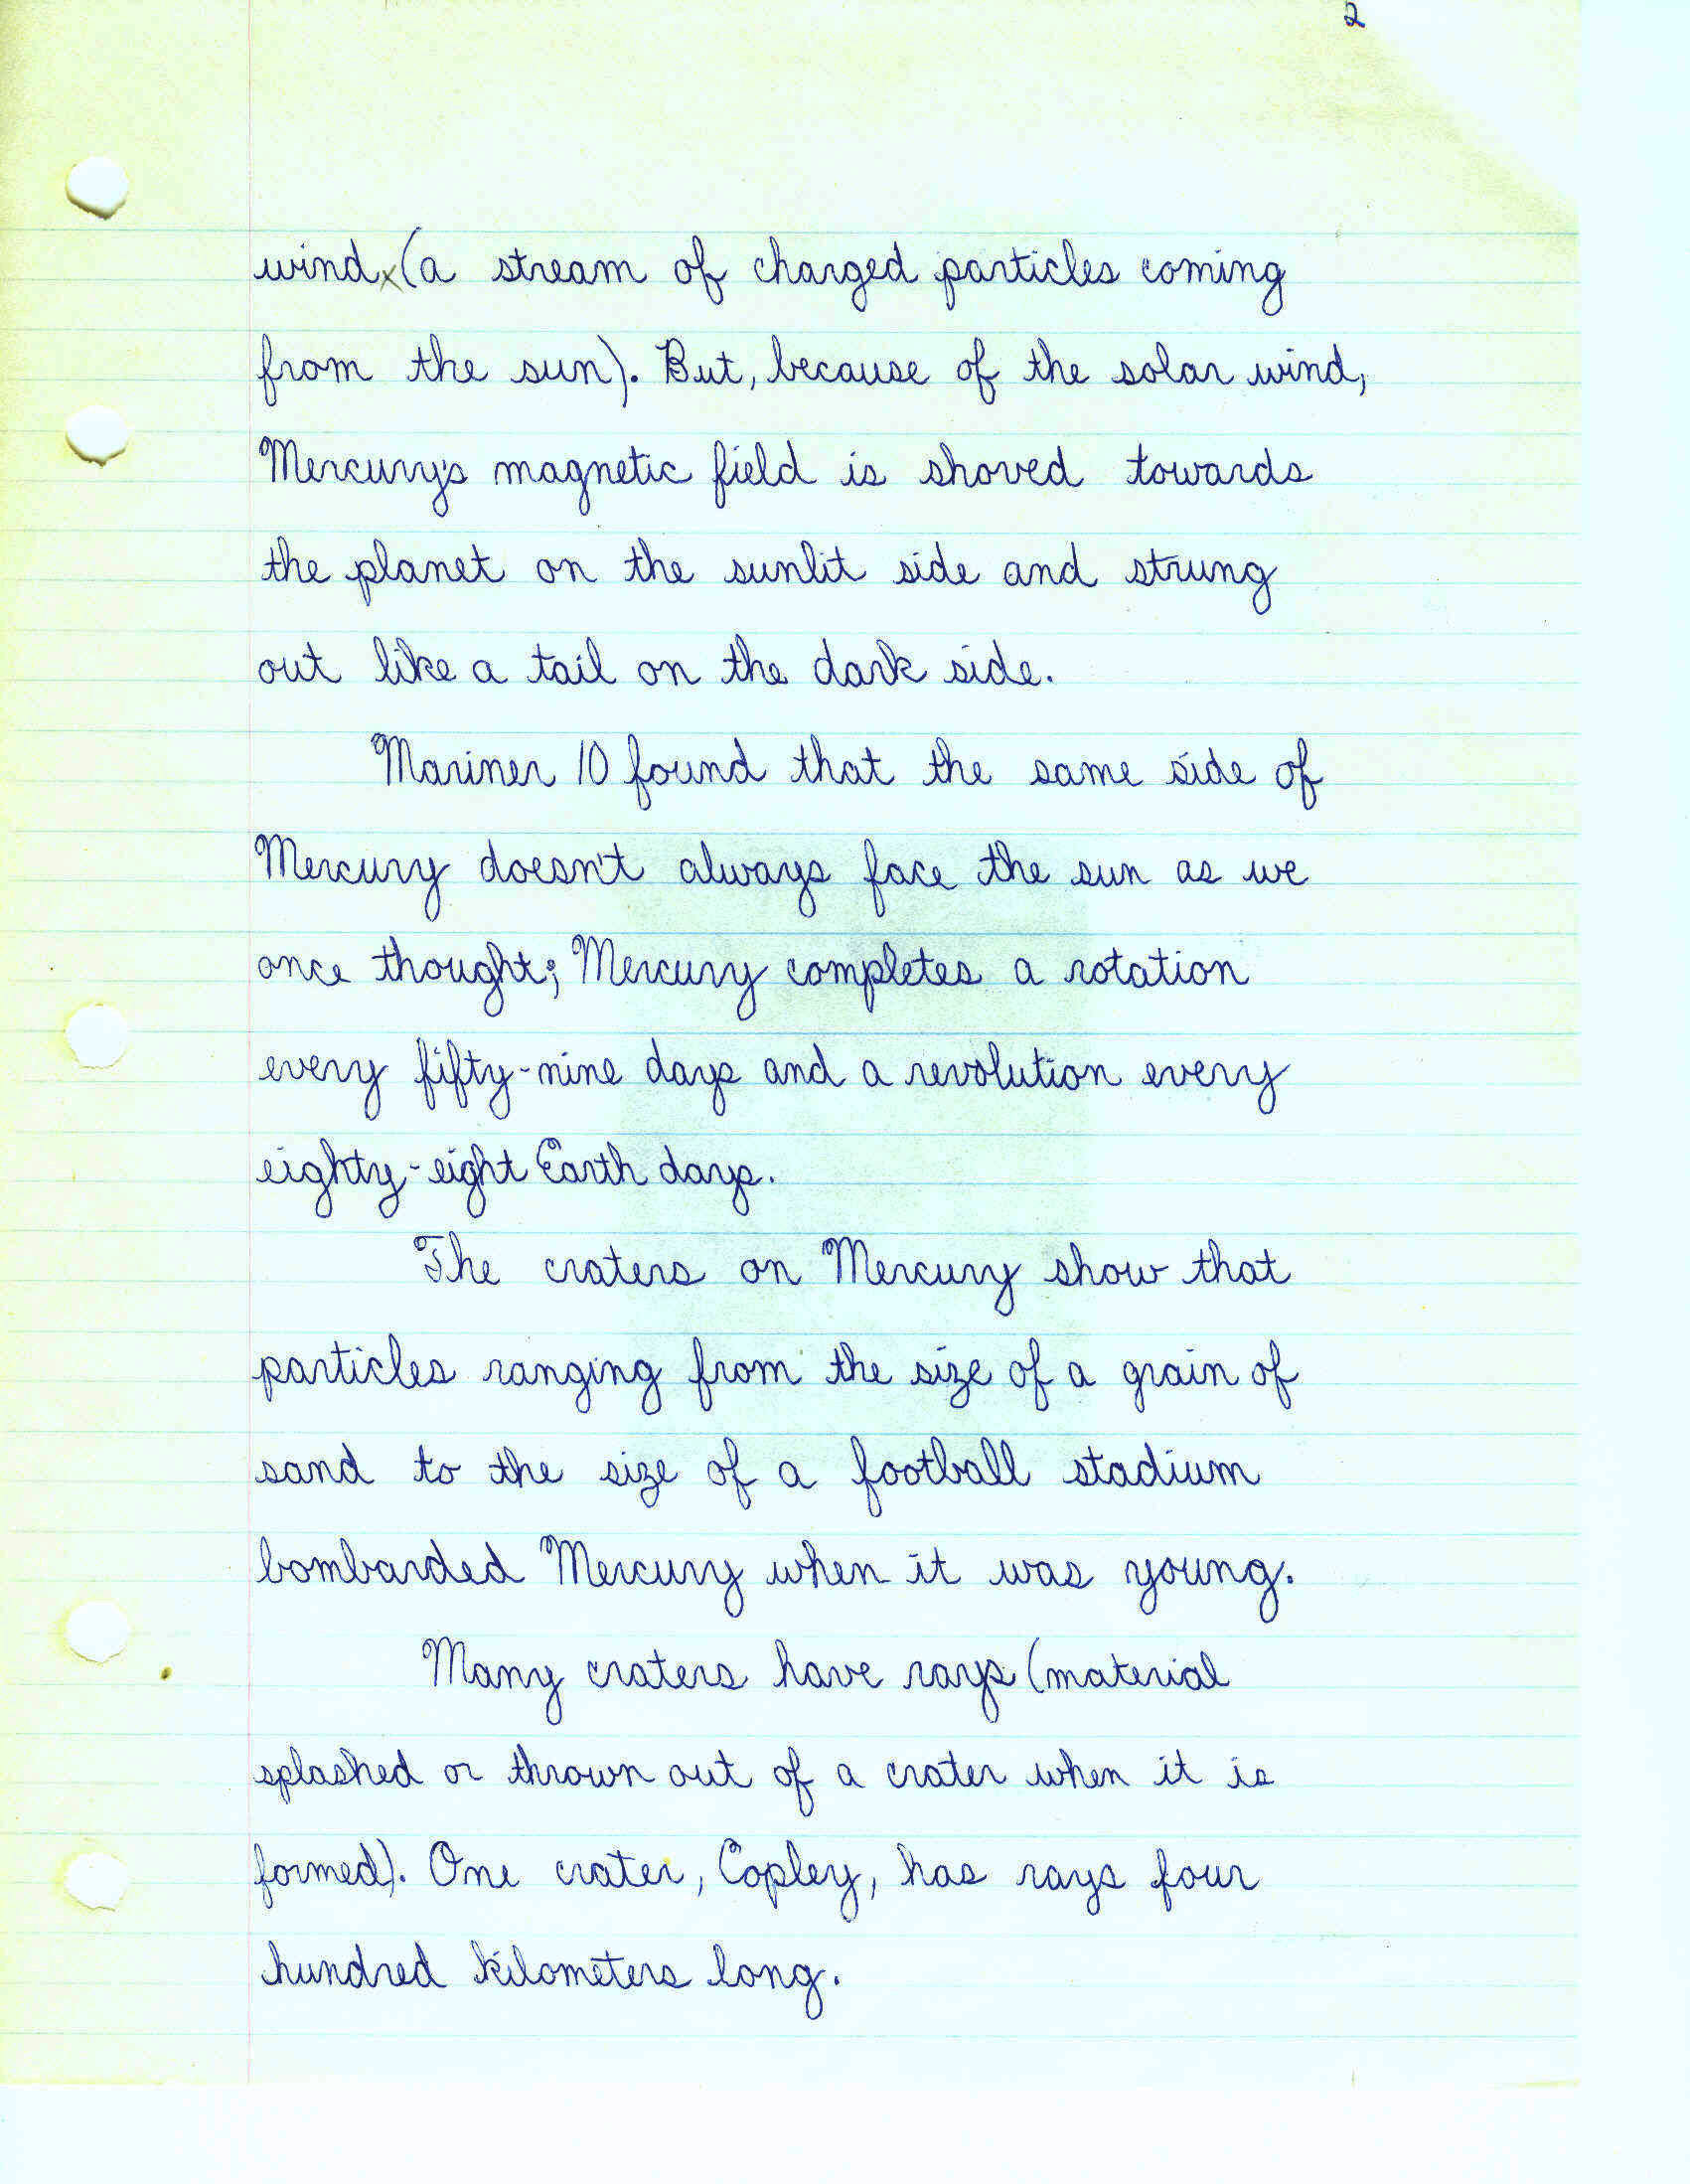 2
wind (a stream of charged particles coming
from the sun). But, because of the solar wind,
Mercury's magnetic field is shoved towards
the planet on the sunlit side and strung
out like a tail on the dark side.
Mariner 10 found that the same side of
Mercury doesn't always face the sun as we
once thought; Mercury completes a rotation
every fifty-nine days and a revolution every
eighty-eight Earth days.
The craters on Mercury show that
particles ranging from the size of a grain of
sand to the size of a football stadium
bombarded Mercury when it was young.
Many craters have rays (material
splashed or thrown out of a crater when it is
formed). One crater, Copley, has rays four
hundred kilometers long.